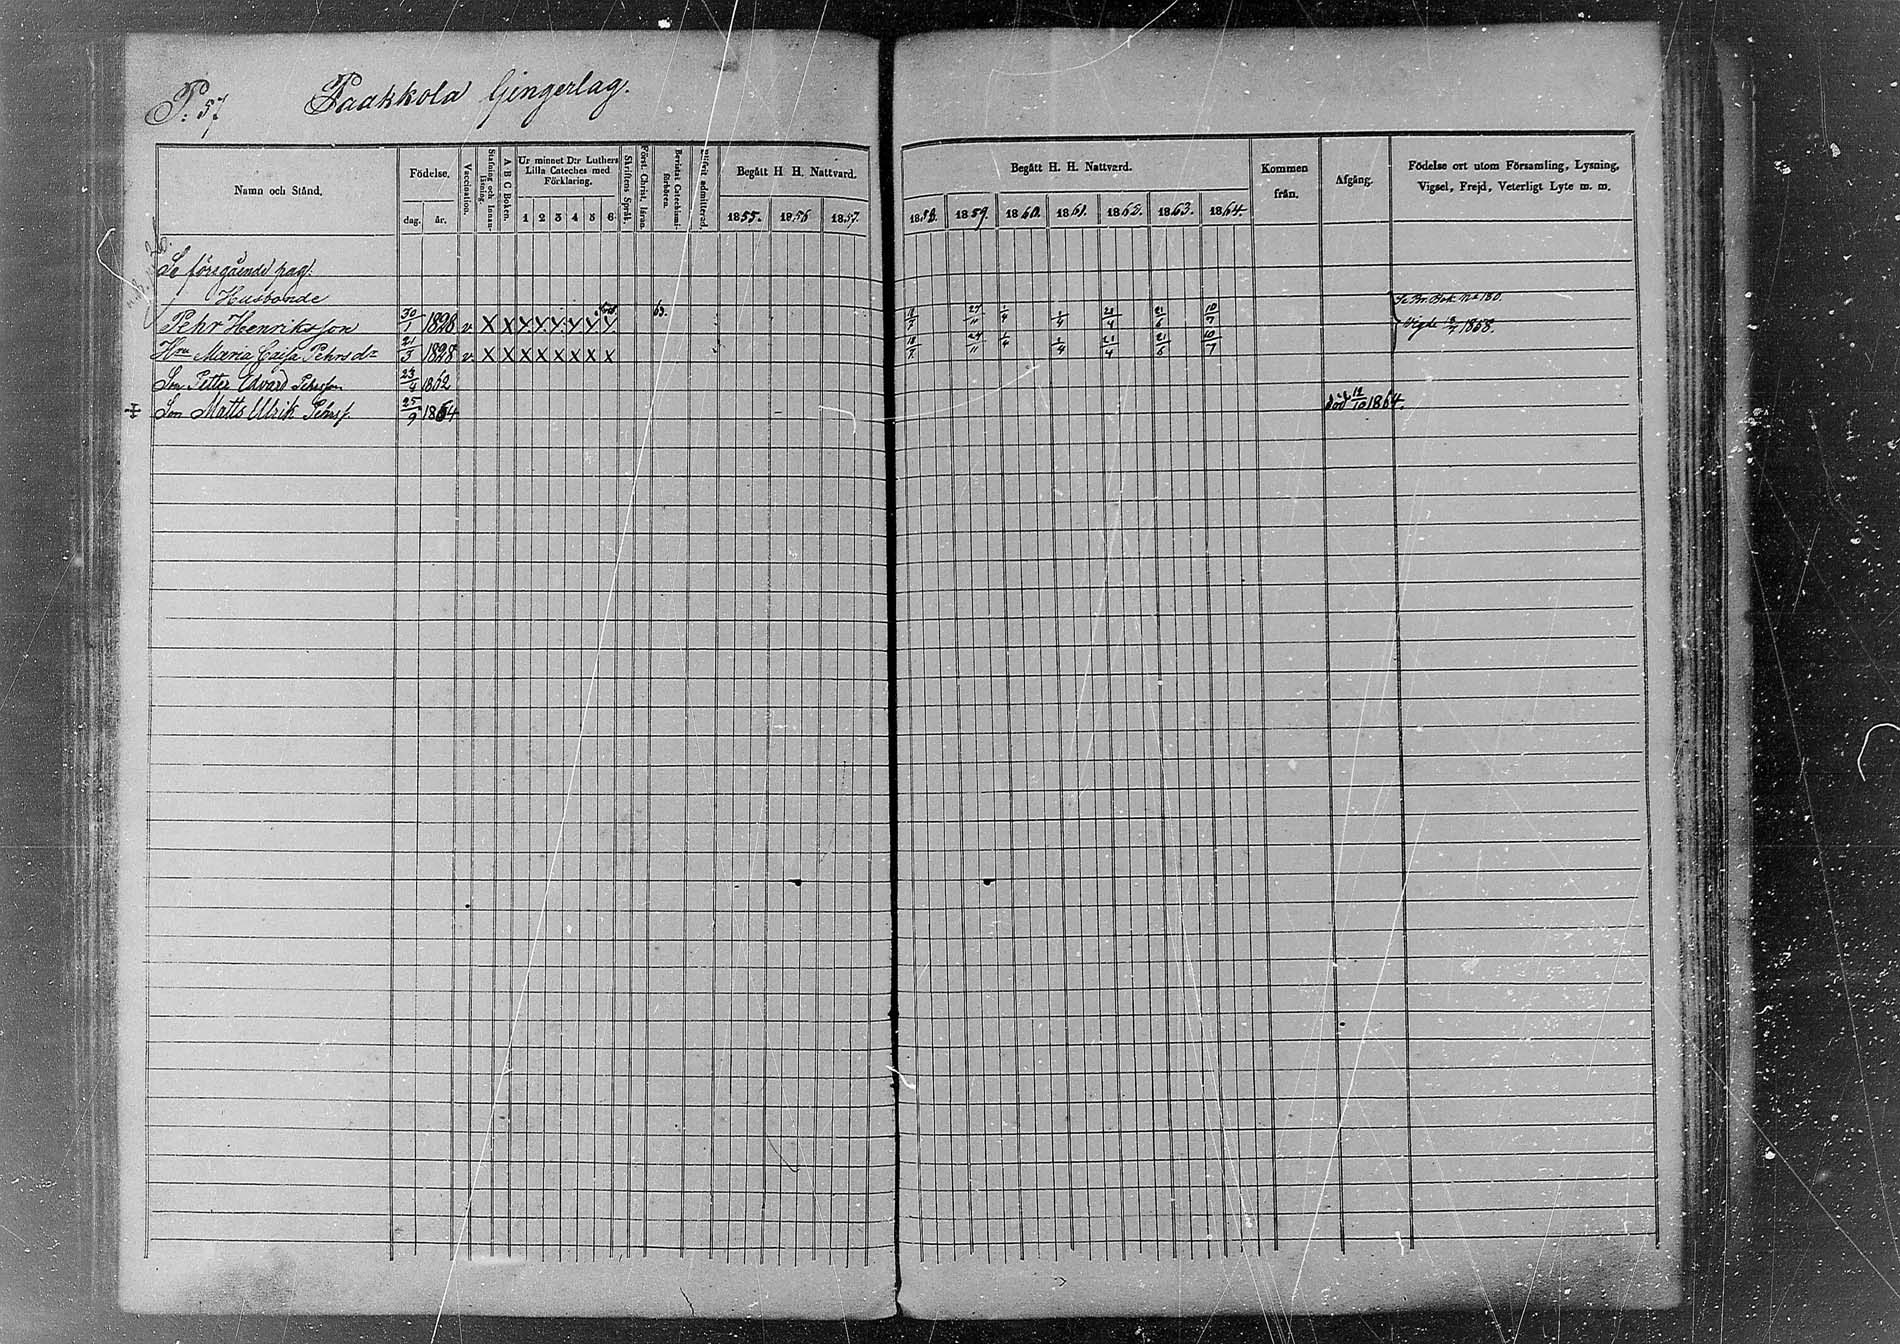 P. 57 Paakkola Gingerlag.
Namn och Stånd.
Födelse.
dag. år.
Vaccination.
Stafning och Innan-läsning.
A B C Boken.
Ur minnet D:r Luthers Lilla Cateches med Förklaring.
1 2 3 4 5 6
Skriftens Språk.
Först. Christ. läran.
Bevistat Catechismi-förhören.
admitterad.
Begått H H. Nattvard.
1855. 1856 1857.
Begått H. H. Nattvard.
1858. 1859. 1860. 1861. 1862. 1863. 1864.
Kommen från.
Afgång.
Födelse ort utom Församling, Lysning,
Vigsel, Frejd, Veterligt Lyte m. m.
Se föregående pag:
Husbonde
Pehr Henriksson 30/1 1828 v X X Y Y Y Y Y Y 63. 18/7 27/11 1/4 1/4 21/4 21/6 10/7 Se Br. Bok No 180.
Vigde 18/7 1858.
Hru Maria Caisa Pehrsdr 21/3 1828 v. X X X X X X X X 18/7 27/11 1/4 1/4 21/4 21/6 10/7
Son Petter Edvard Pehrsson 23/4 1862
Son Matts Ulrik Pehrss. 25/9 1864 död 12/10 1864.